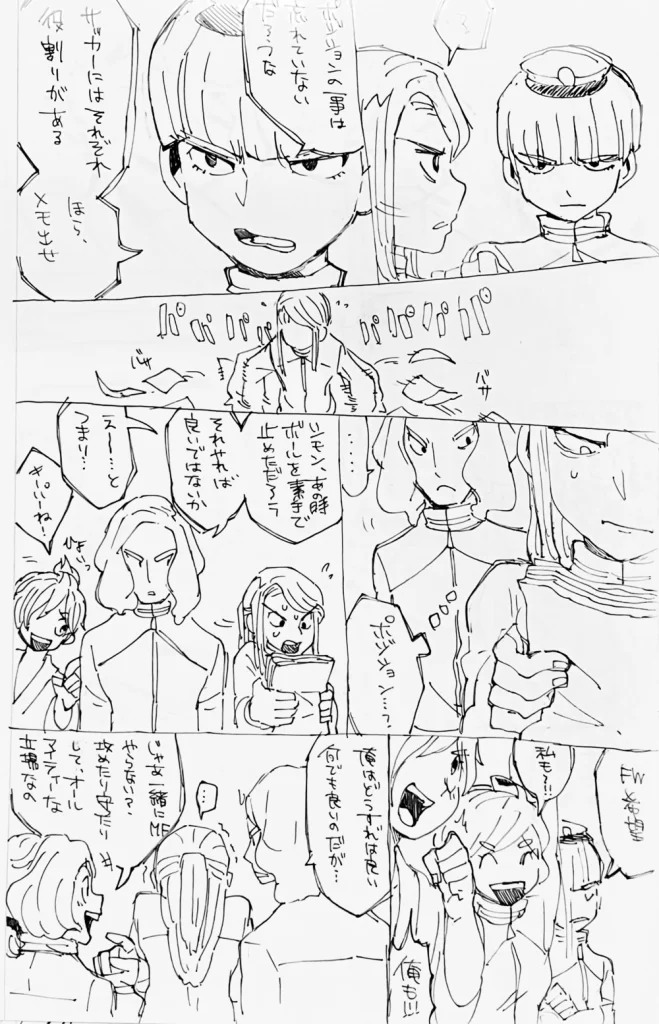 る
ポジションの事は
忘れていない
だろうな
サッカーにはそれぞれ
役割りがある
ほら、
メモ出せ
パパパパ
パパパパ
バサ
バサ
ポジション…?
シモン、あの時
ボールを素手で
止めただろう
それやれば
良いではないか
えー…と
つまり…
ひょいっ
FW希望
私も!!
俺も!!
俺はどうすれば良い
何でも良いのだが…
じゃあ一緒にMF
やらない?
攻めたり守たり
して、オール
立場なの